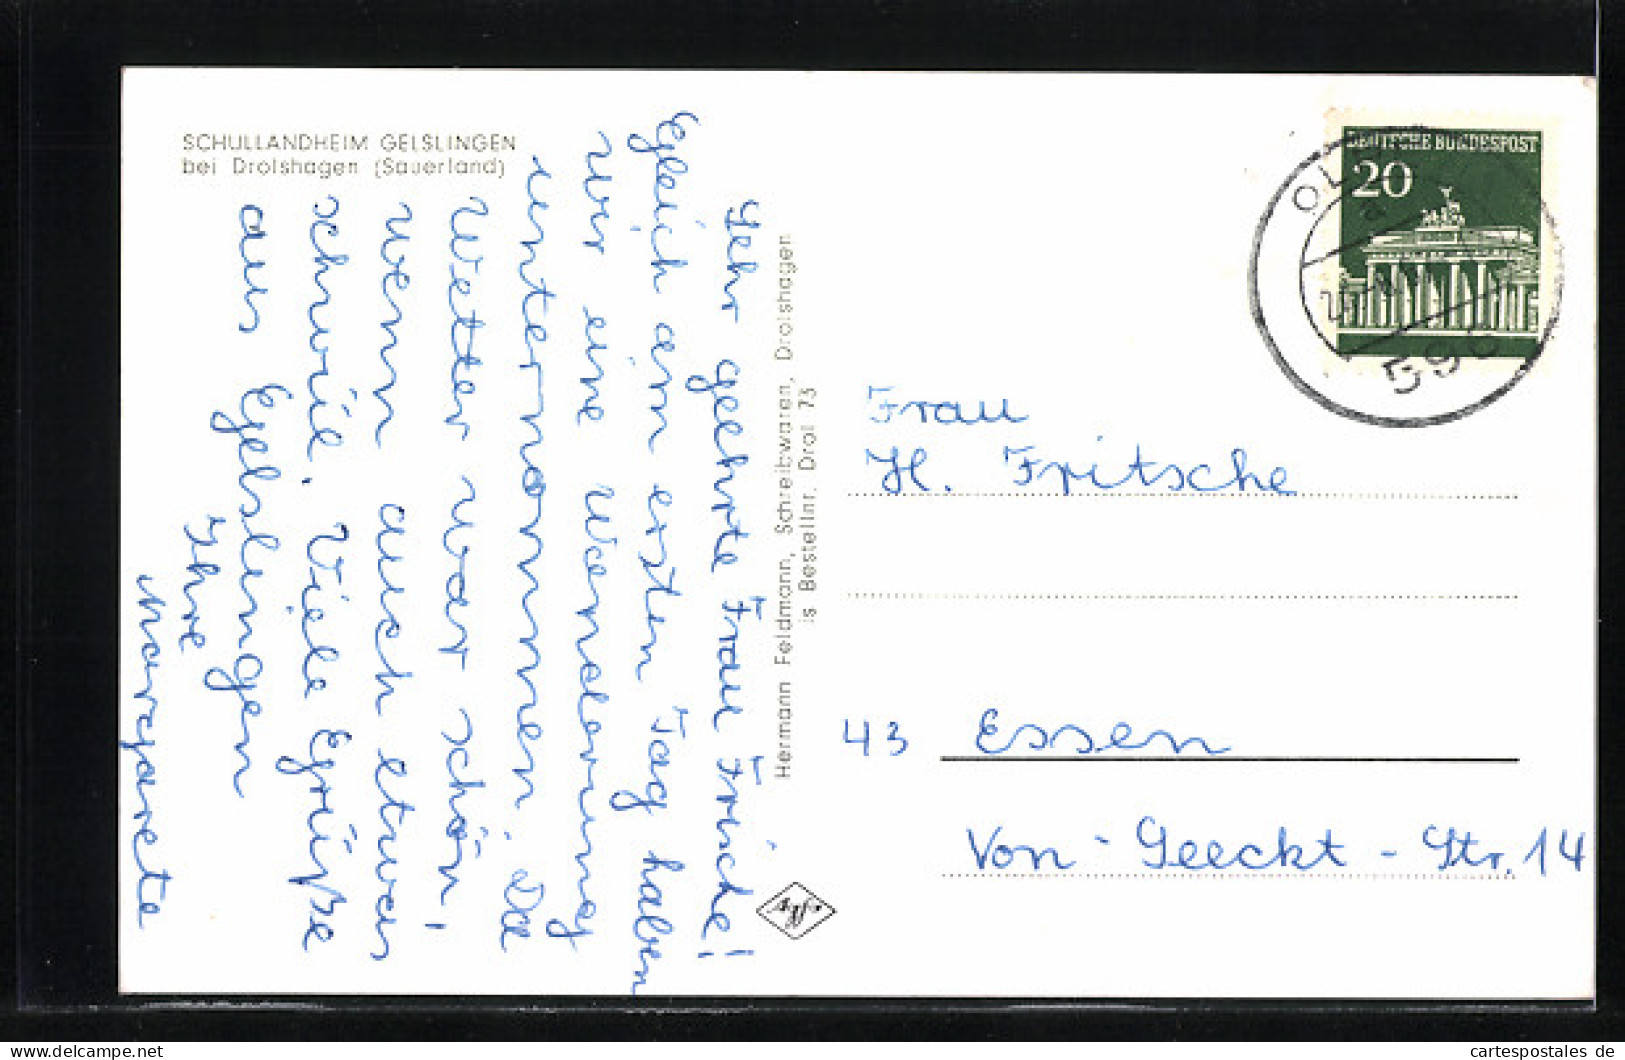 SCHULLANDHEIM GELSLINGEN
bei Drolshagen (Sauerland)
Sehr geehrte Frau Fritsche!
Gleich am ersten Tag haben
wir eine Wanderung
unternommen. Das
Wetter war schön,
wenn auch etwas
schwül. Viele Grüße
aus Gelslingen
Ihre
Margarete
Hermann Feldmann, Schreibwaren, Drolshagen
is Bestellnr. Drol 73
DEUTSCHE BUNDESPOST
20
OL
596
Frau
H. Fritsche
43 Essen
Von-Seeckt-Str. 14
cartespostales de